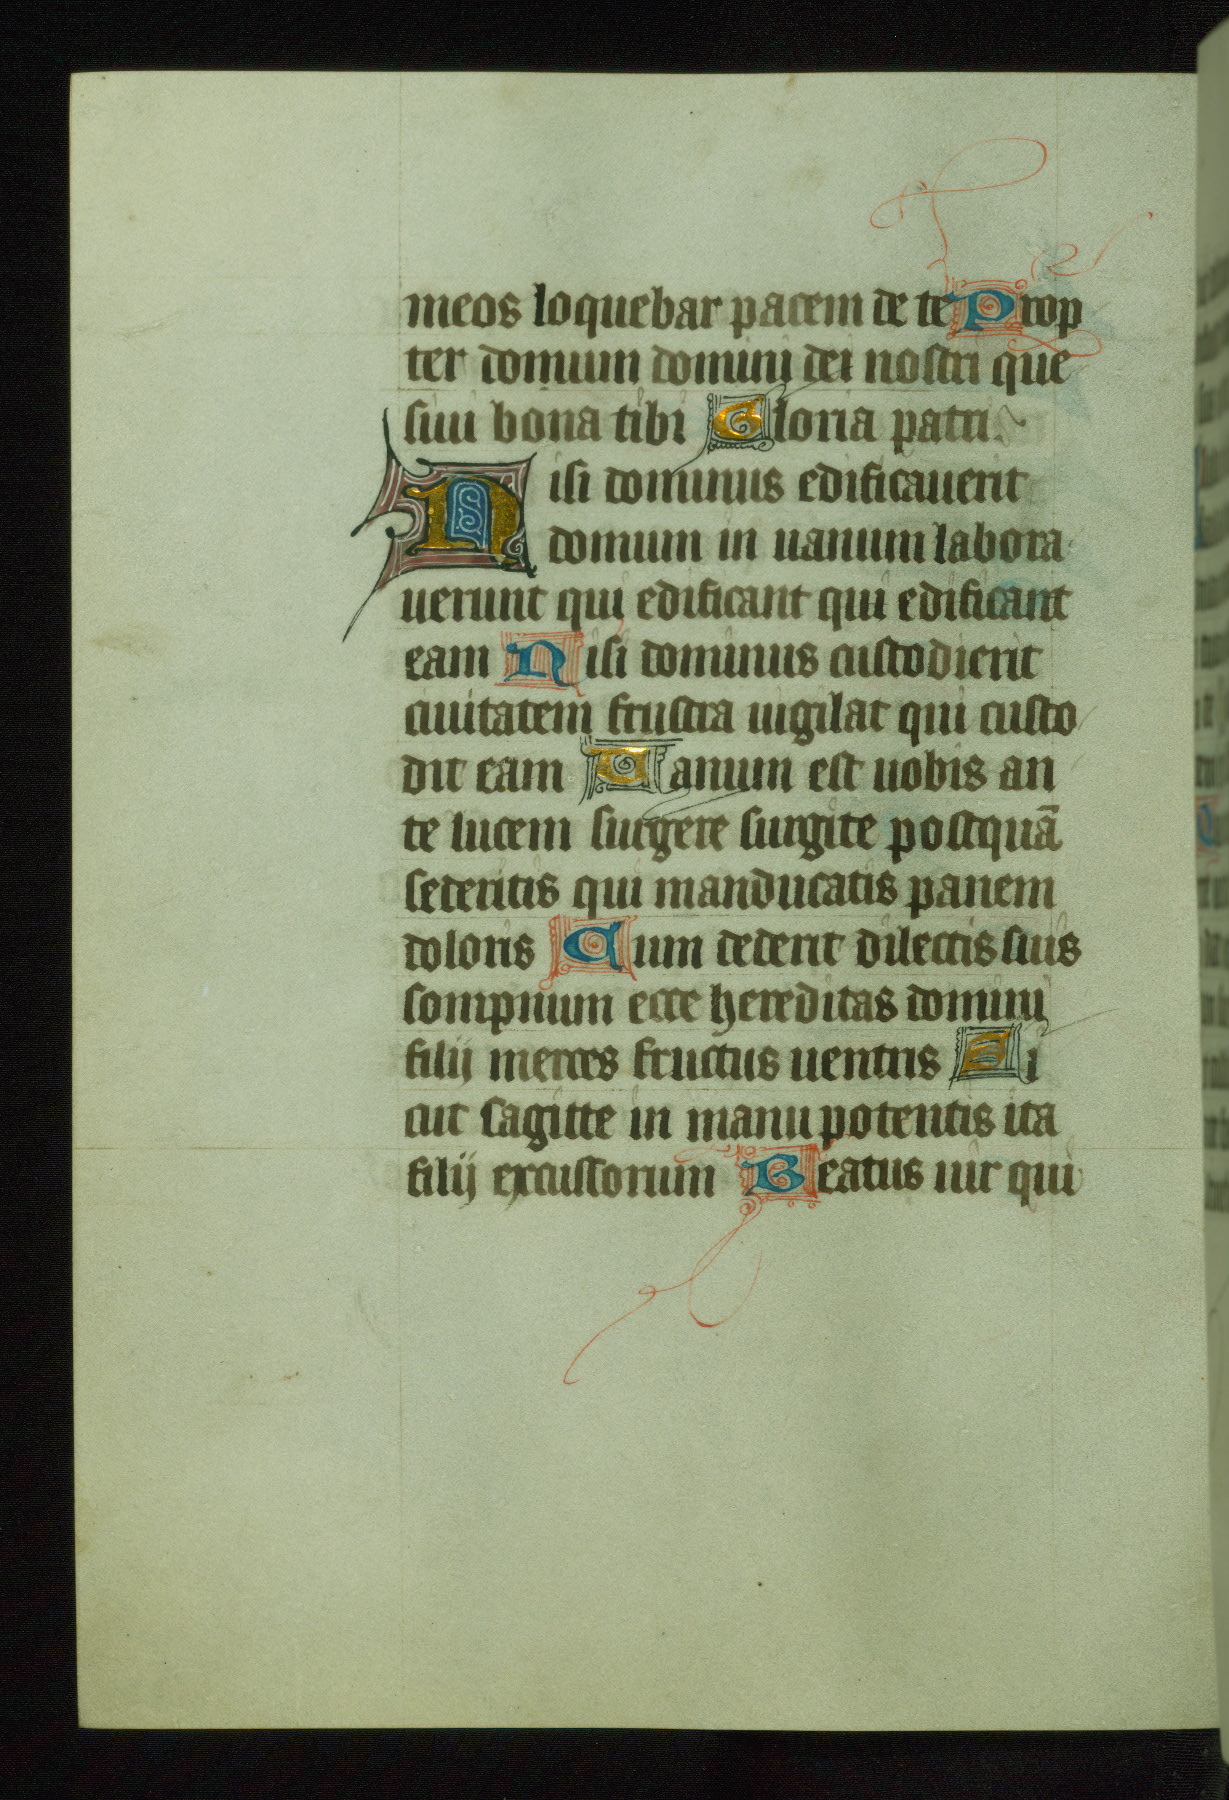 meos loquebar pacem de te Prop
ter domum domini dei nostri que
siui bona tibi Gloria patri
Nisi dominus edificauerit
domum in uanum labora
uerunt qui edificant qui edificant
eam Nisi dominus custodierit
ciuitatem frustra uigilat qui custo
dit eam Uanum est uobis an
te lucem surgere surgite postquã
sederitis qui manducatis panem
doloris Cum dederit dilectis suis
sompnum ecce hereditas domini
filij merces fructus uentris Si
cut sagitte in manu potentis ita
filij excussorum Beatus uir qui